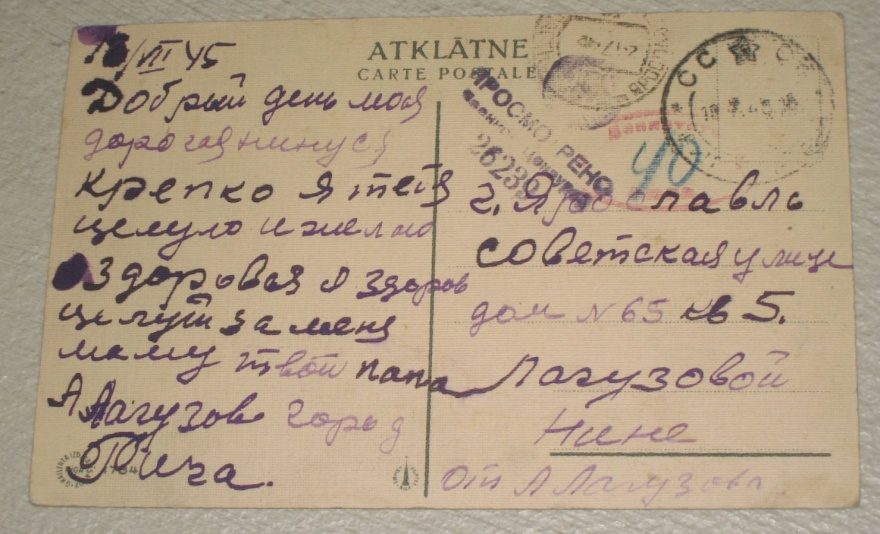 16/VII 45
Добрый день моя
дорогая нинуся
Крепко я тебя
целую и желаю
Здоровая я здоров
целуй за меня
маму твой папа
А Лагузов город
Рига.
ATKLĀTNE
CARTE POSTALE
ПРОСМОТРЕНО
Военной Цензурой
26236
СССР
40
г. Ярославль
советская улице
дом N 65 кв 5.
Лагузовой
Нине
От А Лагузова